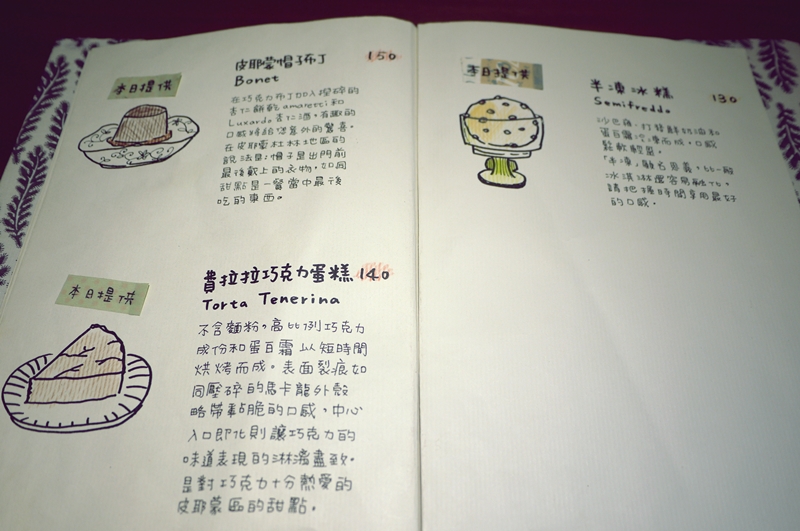 本日提供
皮耶蒙帽子布丁 150
Bonet
在巧克力布丁加入撥碎的
杏仁餅乾amaretti和
Luxardo杏仁酒。有趣的
口感將給您意外的驚喜。
在皮耶蒙杜林地區的
說法是:帽子是出門前
最後戴上的衣物,如同
甜點是一餐當中最後
吃的東西。
本日提供
費拉拉巧克力蛋糕 140
Torta Tenerina
不含麵粉,高比例巧克力
成份和蛋白霜以短時間
烘烤而成。表面裂痕如
同壓碎的馬卡龍外殼
略帶黏脆的口感,中心
入口即化則讓巧克力的
味道表現的淋漓盡致。
是對巧克力十分熱愛的
皮耶蒙區的甜點。
本日提供
半凍冰糕 130
Semifreddo
沙巴翁、打發鮮奶油和
蛋白霜冷凍而成,口感
鬆軟輕盈。
「半凍」顧名思義,比一般
冰淇淋還容易融化,
請把握時間享用最好
的口感。